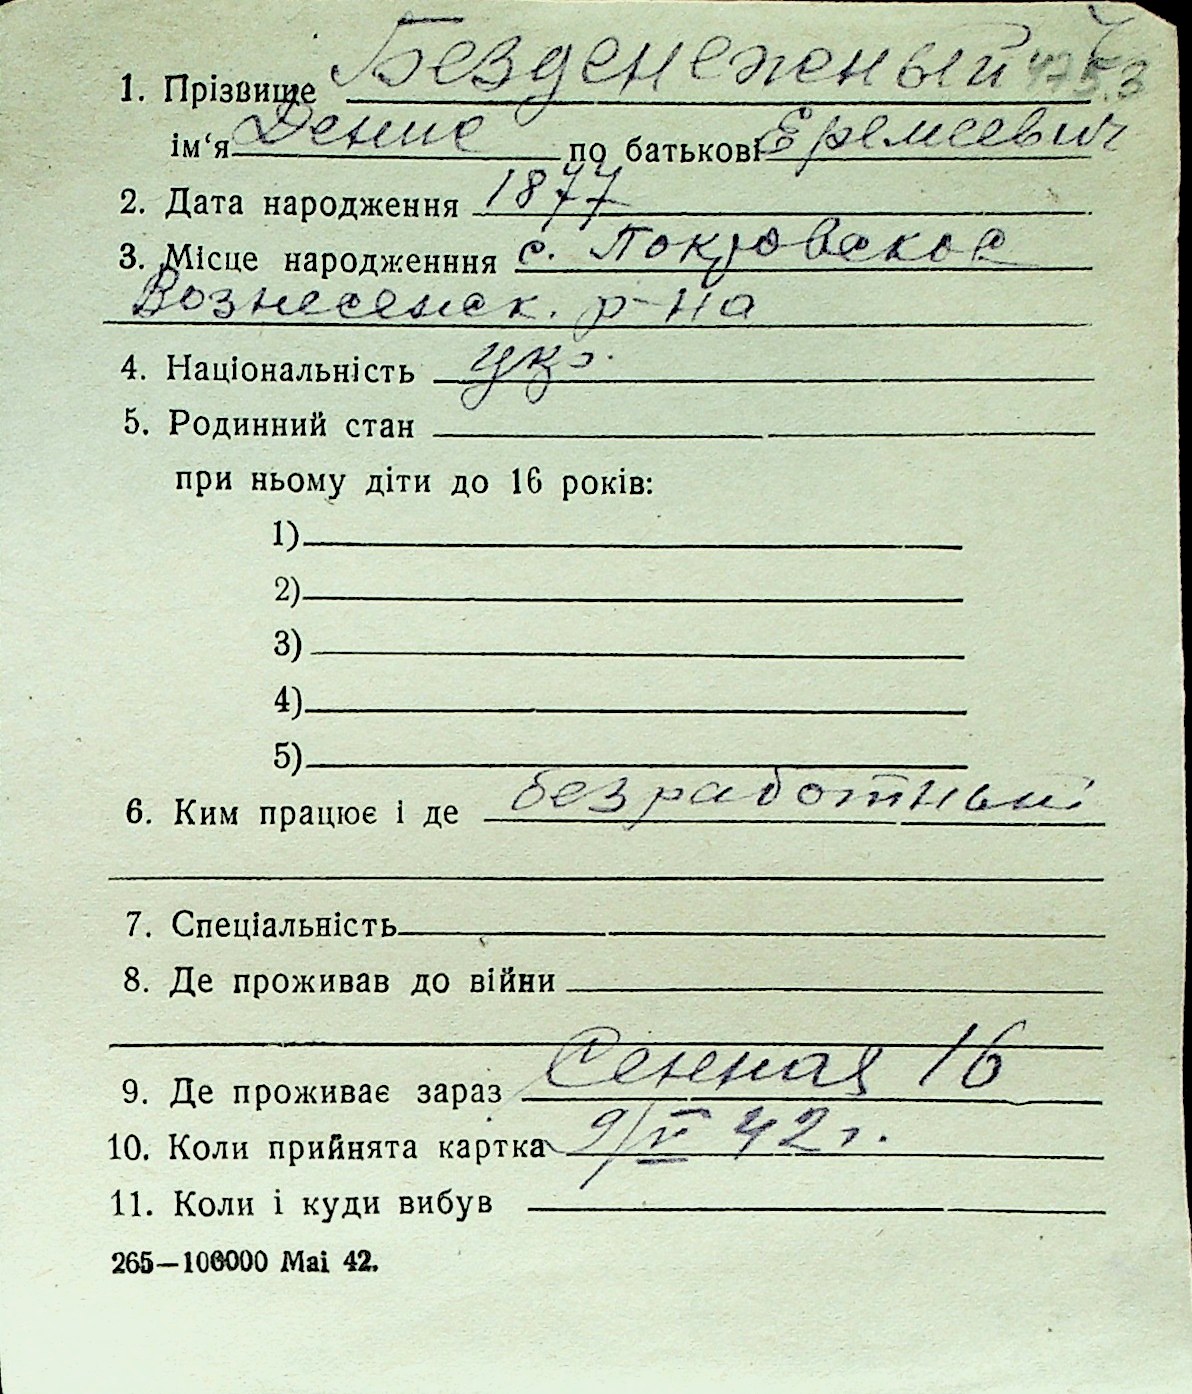 1. Прізвище Безденежный
ім‘я Денис по батькові Еремеевич
2. Дата народження 1877
3. Місце народженння с. Покровское
Вознесенск. р-на
4. Національність укр.
5. Родинний стан
при ньому діти до 16 років:
1)
2)
3)
4)
5)
6. Ким працює і де безработный
7. Спеціальність
8. Де проживав до війни
9. Де проживає зараз Сенная 16
10. Коли прийнята картка 9/V 42 г.
11. Коли і куди вибув
265—100000 Маі 42.